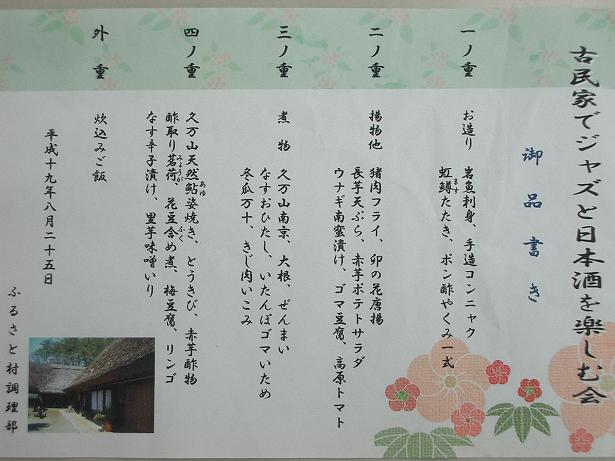 古民家でジャズと日本酒を楽しむ会
御品書き
一ノ重 お造り 岩魚刺身、手造コンニャク
虹鱒たたき、ポン酢やくみ一式
ます
二ノ重 揚物他 猪肉フライ、卯の花唐揚
長芋天ぷら、赤芋ポテトサラダ
ウナギ南蛮漬け、ゴマ豆腐、高原トマト
三ノ重 煮物 久万山南京、大根、ぜんまい
なすおひたし、いたんぽゴマいため
冬瓜万十、きじ肉いこみ
四ノ重 久万山天然鮎姿焼き、とうきび、赤芋酢物
あゆ
酢取り茗荷、花豆含め煮、梅豆腐、リンゴ
みょうが ふく
なす辛子漬け、里芋味噌いり
外重 炊込みご飯
平成十九年八月二十五日
ふるさと村調理部